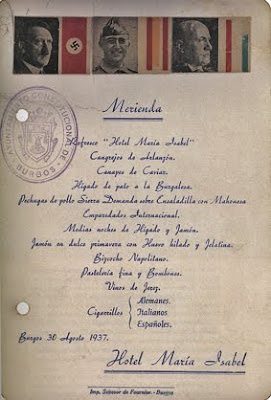 AYUNTAMIENTO CONSTITUCIONAL DE
BURGOS
Merienda
Refresco "Hotel María Isabel"
Cangrejos de Arlanzón.
Canapes de Caviar.
Higado de pato a la Burgalesa.
Pechugas de pollo Sierra Demanda sobre Ensaladilla con Mahonesa
Emparedados Internacional.
Medias noches de Higado y Jamón.
Jamón en dulce primavera con Huevo hilado y Jelatina.
Bizcocho Napolitano.
Pastelería fina y Bombones.
Vinos de Jerez.
Alemanes.
Cigarrillos Italianos
Españoles.
Burgos 30 Agosto 1937.
Hotel María Isabel
Imp. Sucesor de Fournier.-Burgos